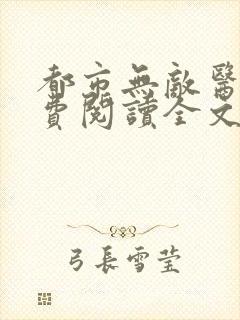 都市無敵醫
費閱讀全文
弓長雪瑩